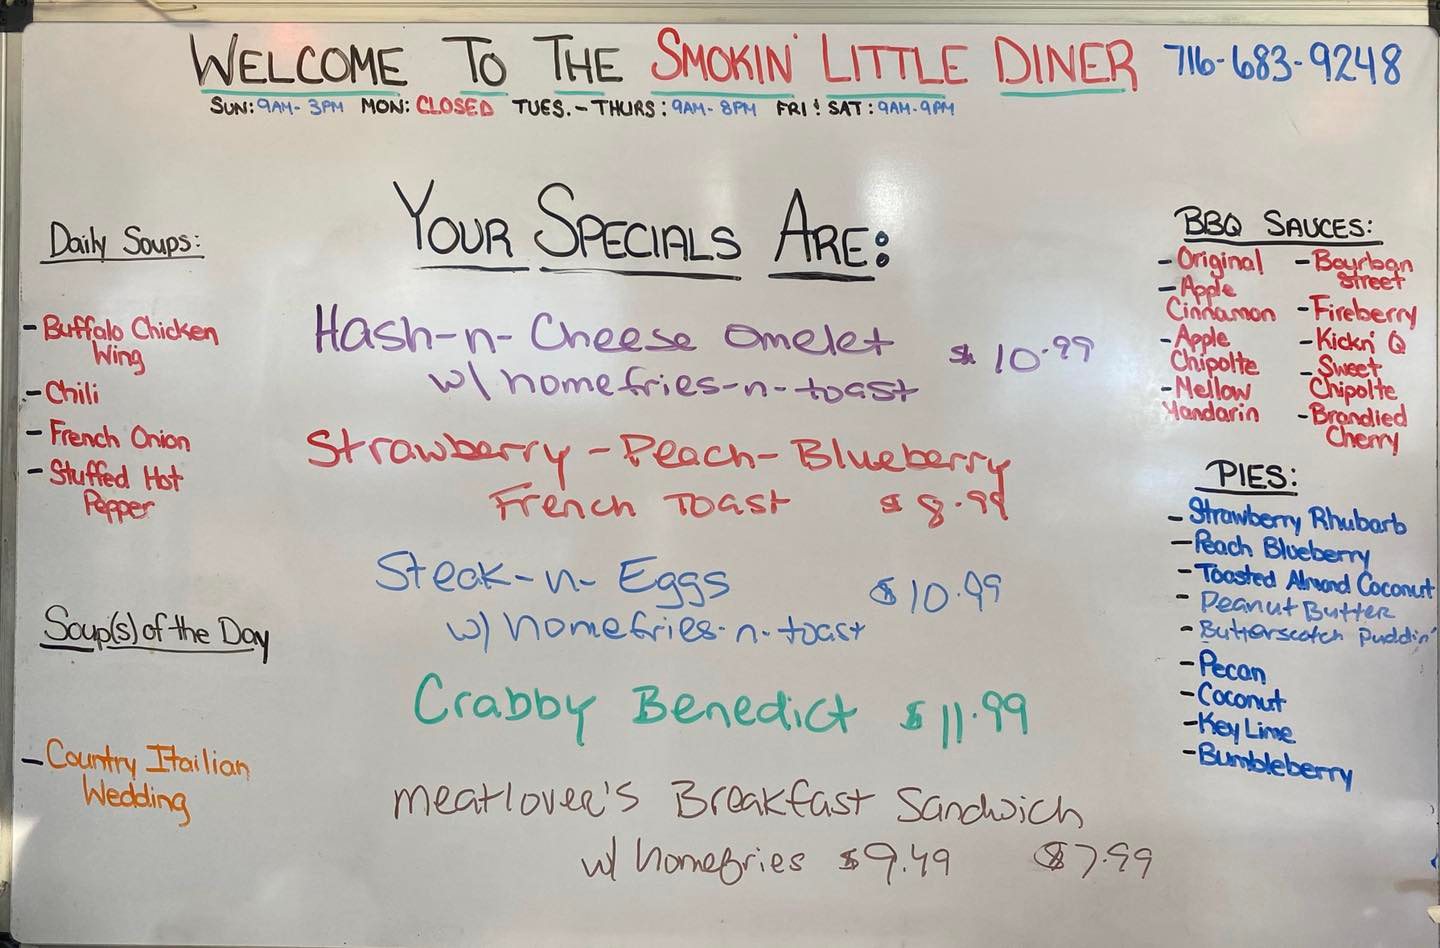 WELCOME TO THE SMOKIN' LITTLE DINER 716-683-9248
SUN: 9AM-3PM MON: CLOSED TUES.-THURS: 9AM-8PM FRI & SAT: 9AM-9PM
YOUR SPECIALS ARE:
Daily Soups:
- Buffalo Chicken
Wing
- Chili
- French Onion
- Stuffed Hot
Pepper
Soup(s) of the Day
- Country Itailian
Wedding
Hash-n-Cheese omelet $10.99
w/ homefries-n-toast
Strawberry-Peach-Blueberry
French Toast $8.99
Steak-n-Eggs $10.99
w/ homefries-n-toast
Crabby Benedict $11.99
meatlover's Breakfast Sandwich
w/ homefries $9.49 $7.99
BBQ SAUCES:
- Original
- Apple
Cinnamon
- Apple
Chipolte
- Mellow
Mandarin
- Bourbon
Street
- Fireberry
- Kickn' Q
- Sweet
Chipolte
- Brandied
Cherry
PIES:
- Strawberry Rhubarb
- Peach Blueberry
- Toasted Almond Coconut
- Peanut Butter
- Butterscotch Puddin'
- Pecan
- Coconut
- Key Lime
- Bumbleberry